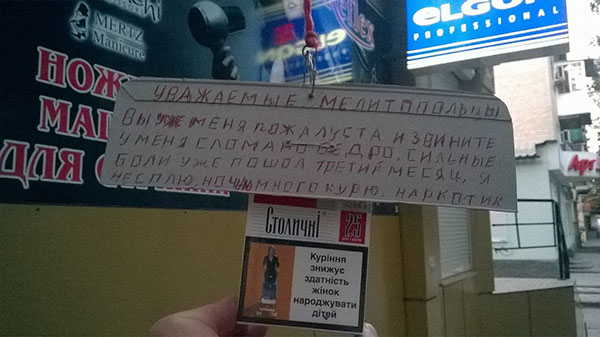 MERTZ
Manicure
ELGON
PROFESSIONAL
НОЖ
МАШ
ДЛЯ С
УВАЖАЕМЫЕ МЕЛИТОПОЛЬЦЫ
ВЫ УЖЕ МЕНЯ ПОЖАЛУСТА ИЗВИНИТЕ
У МЕНЯ СЛОМАНО БЕДРО, СИЛЬНЫЕ
БОЛИ УЖЕ ПОШОЛ ТРЕТИЙ МЕСЯЦ, Я
НЕ СПЛЮ, НОЧЬЮ МНОГО КУРЮ. НАРКОТИК
Столичні 25
Куріння
знижує
здатність
жінок
народжувати
дітей